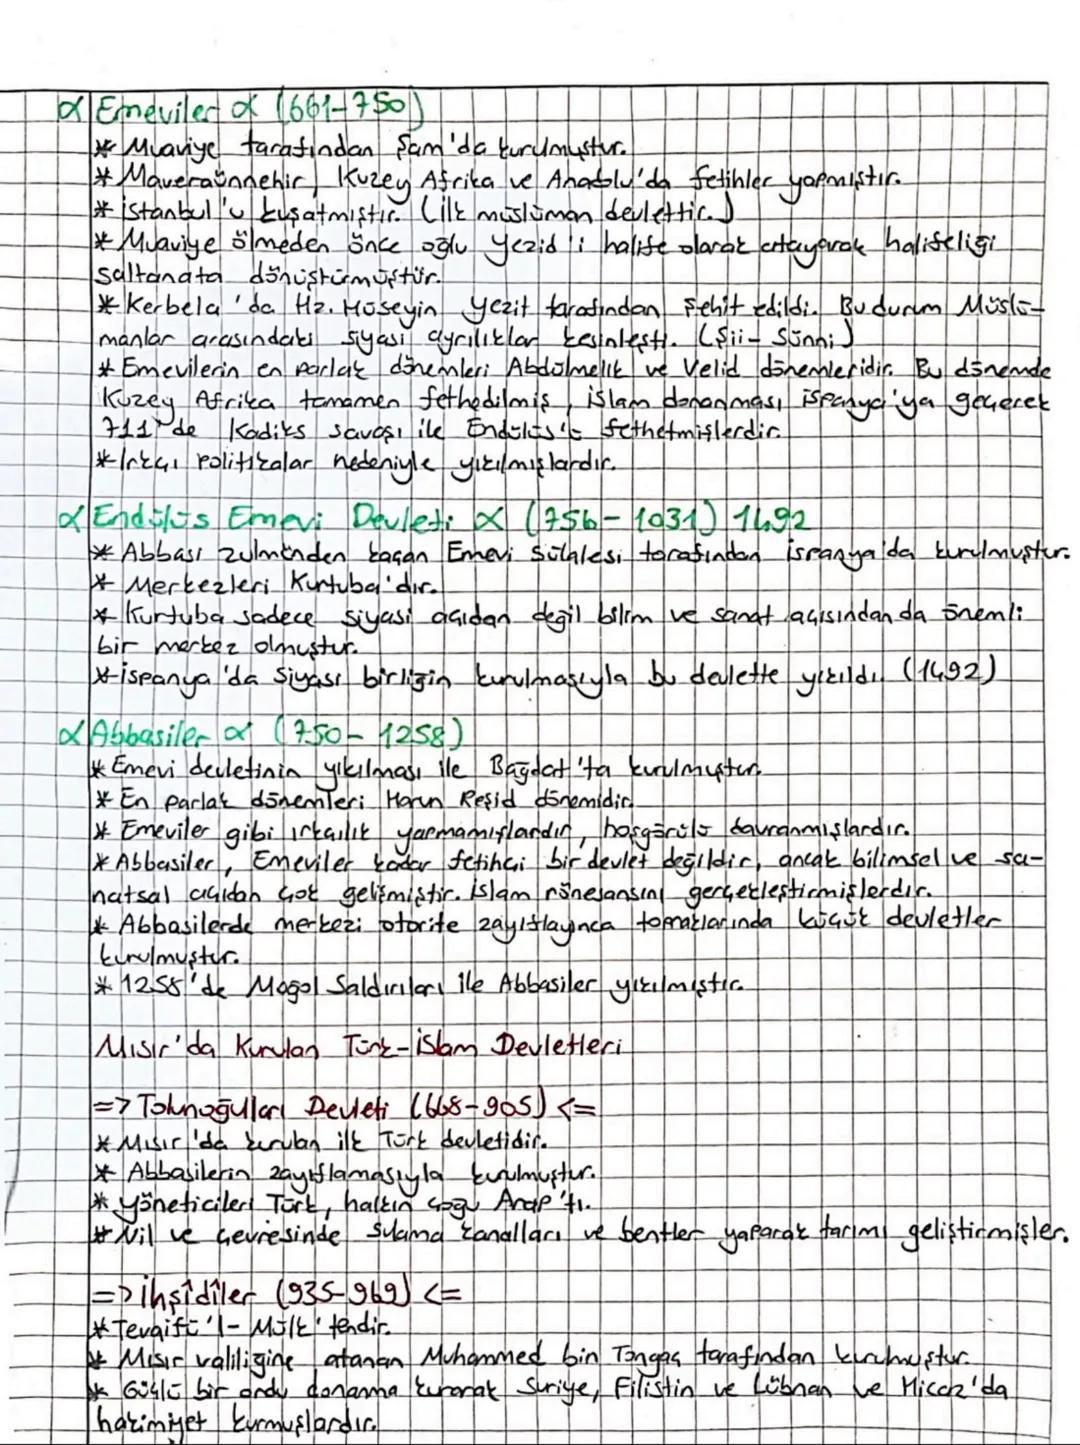 α Emeviler α (661-750)
* Muaviye tarafından Şam'da kurulmuştur.
* Maveraünnehir, Kuzey Afrika ve Anadolu'da fetihler yapmıştır.
* İstanbul'u kuşatmıştır. (ilk müslüman devlettir.)
* Muaviye ölmeden önce oğlu Yezid'i halife olarak atayarak halifeliği
saltanata dönüştürmüştür.
* Kerbela'da Hz. Hüseyin Yezit tarafından şehit edildi. Bu durum Müslü-
manlar arasındaki siyasi ayrılıklar kesinleşti. (Şii-Sünni)
* Emevilerin en parlak dönemleri Abdülmelik ve Velid dönemleridir. Bu dönemde
Kuzey Afrika tamamen fethedilmiş, islam donanması ispanya'ya geçerek
711'de Kadiks savaşı ile Endülüs'ü fethetmişlerdir.
* Irkçı politikalar nedeniyle yıkılmışlardır.
α Endülüs Emevi Devleti α (756-1031) 1492
* Abbası zulmünden kaçan Emevi sülalesi tarafından ispanya'da kurulmuştur.
* Merkezleri Kurtuba'dır.
* Kurtuba sadece siyasi açıdan değil bilim ve sanat açısından da önemli
bir merkez olmuştur.
* İspanya'da Siyası birliğin kurulmasıyla bu devlette yıkıldı. (1492)
α Abbasiler α (750-1258)
* Emevi devletinin yıkılması ile Bağdat'ta kurulmuştur.
* En parlak dönemleri Harun Reşid dönemidir.
* Emeviler gibi ırkçılık yapmamışlardır, hoşgörülü davranmışlardır.
* Abbasiler, Emeviler kadar fetihçi bir devlet değildir, ancak bilimsel ve sa-
natsal açıdan çok gelişmiştir. İslam rönesansını gerçekleştirmişlerdir.
* Abbasilerde merkezi otorite zayıflayınca topraklarında küçük devletler
kurulmuştur.
* 1258'de Moğol Saldırıları ile Abbasiler yıkılmıştır.
Mısır'da Kurulan Türk-islam Devletleri
=> Tolunoğulları Devleti (668-905) <=
* Mısır'da kurulan ilk Türk devletidir.
* Abbasilerin zayıflamasıyla kurulmuştur.
* Yöneticileri Türk, halkın çoğu Arap'tı.
* Nil ve çevresinde sulama kanalları ve bentler yaparak tarımı geliştirmişler.
=> İhşîdîler (935-969) <=
* Tevaifü'l-Mülk'tendir.
* Mısır valiliğine atanan Muhammed bin Tongaç tarafından kurulmuştur.
* Güçlü bir ordu donanma kurarak Suriye, Filistin ve Lübnan ve Hicaz'da
hakimiyet kurmuşlardır.